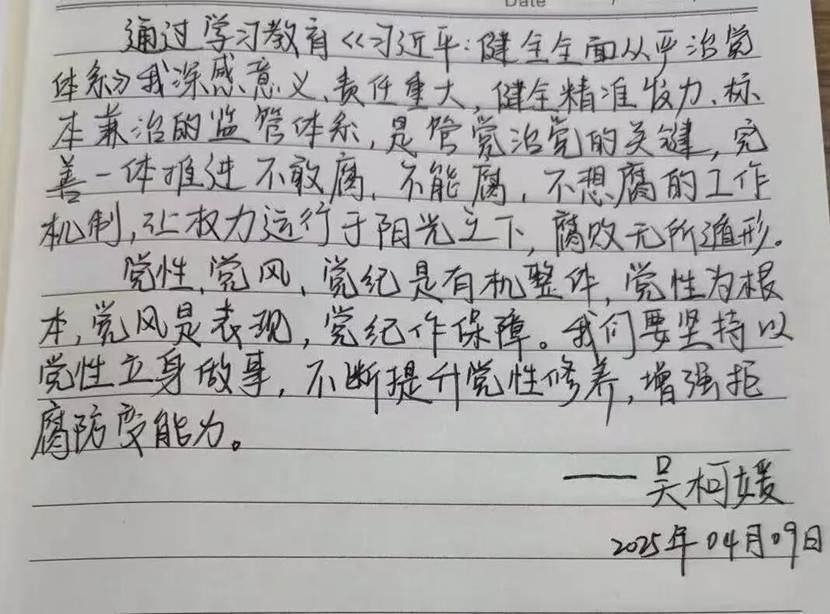 Date
通过学习教育《习近平:健全全面从严治党
体系》我深感意义、责任重大,健全精准发力、标
本兼治的监管体系,是管党治党的关键,完
善一体推进不敢腐、不能腐、不想腐的工作
机制,让权力运行于阳光之下,腐败无所遁形。
党性,党风,党纪是有机整体,党性为根
本,党风是表现,党纪作保障。我们要坚持以
党性立身做事,不断提升党性修养,增强拒
腐防变能力。
——吴柯媛
2025年04月09日